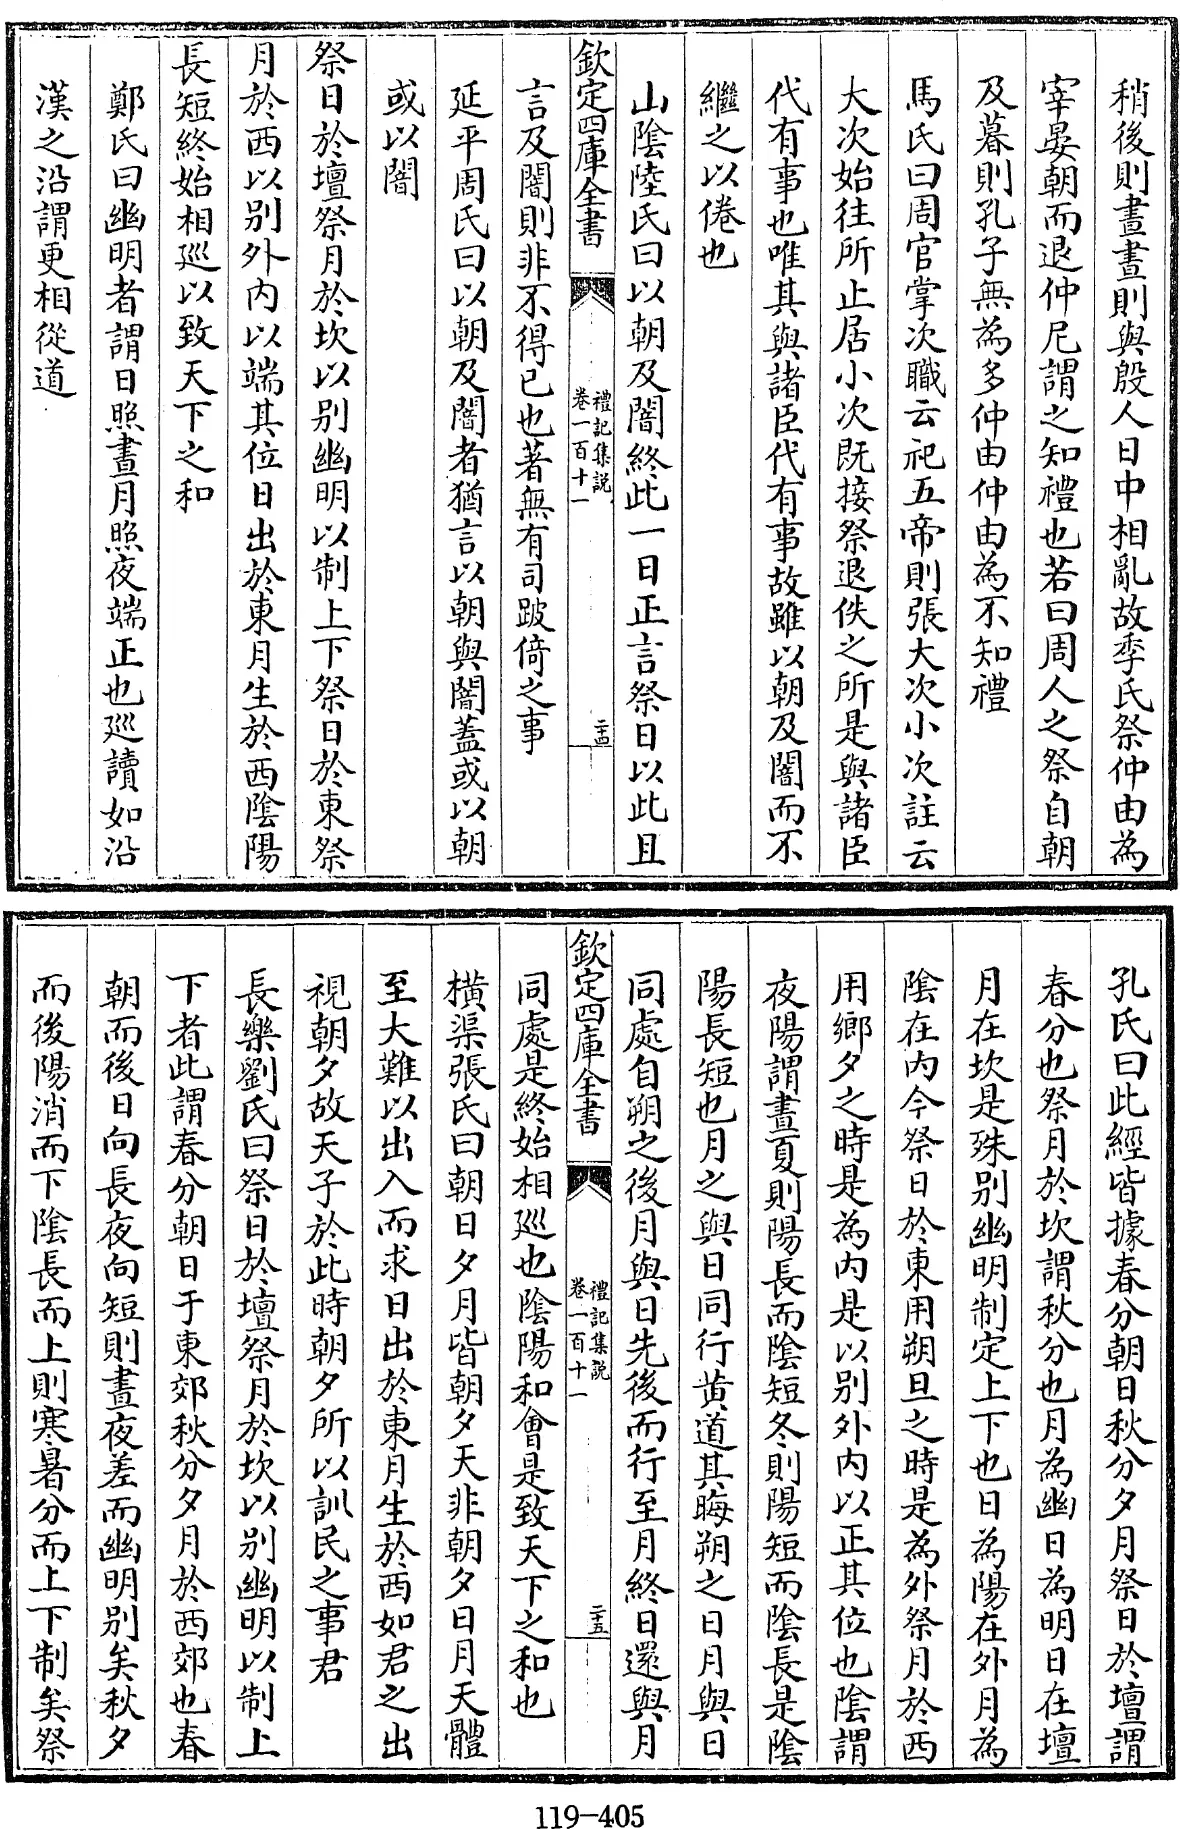 稍後則晝晝則與殷人日中相亂故季氏祭仲由為
宰晏朝而退仲尼謂之知禮也若曰周人之祭自朝
及暮則孔子無為多仲由仲由為不知禮
馬氏曰周官掌次職云祀五帝則張大次小次註云
大次始往所止居小次既接祭退佚之所是與諸臣
代有事也唯其與諸臣代有事故雖以朝及闇而不
繼之以倦也
山陰陸氏曰以朝及闇終此一日正言祭日以此且
欽定四庫全書
禮記集說
卷一百十一
二十四
言及闇則非不得已也著無有司跛倚之事
延平周氏曰以朝及闇者猶言以朝與闇蓋或以朝
或以闇
祭日於壇祭月於坎以別幽明以制上下祭日於東祭
月於西以別外內以端其位日出於東月生於西陰陽
長短終始相巡以致天下之和
鄭氏曰幽明者謂日照晝月照夜端正也巡讀如沿
漢之沿謂更相從道
孔氏曰此經皆據春分朝日秋分夕月祭日於壇謂
春分也祭月於坎謂秋分也月為幽日為明日在壇
月在坎是殊別幽明制定上下也日為陽在外月為
陰在內今祭日於東用朔旦之時是為外祭月於西
用鄉夕之時是為內是以別外內以正其位也陰謂
夜陽謂晝夏則陽長而陰短冬則陽短而陰長是陰
陽長短也月之與日同行黃道其晦朔之日月與日
同處自朔之後月與日先後而行至月終日還與月
欽定四庫全書
禮記集說
卷一百十一
二十五
同處是終始相巡也陰陽和會是致天下之和也
橫渠張氏曰朝日夕月皆朝夕天非朝夕日月天體
至大難以出入而求日出於東月生於西如君之出
視朝夕故天子於此時朝夕所以訓民之事君
長樂劉氏曰祭日於壇祭月於坎以別幽明以制上
下者此謂春分朝日于東郊秋分夕月於西郊也春
朝而後日向長夜向短則晝夜差而幽明別矣秋夕
而後陽消而下陰長而上則寒暑分而上下制矣祭
119-405